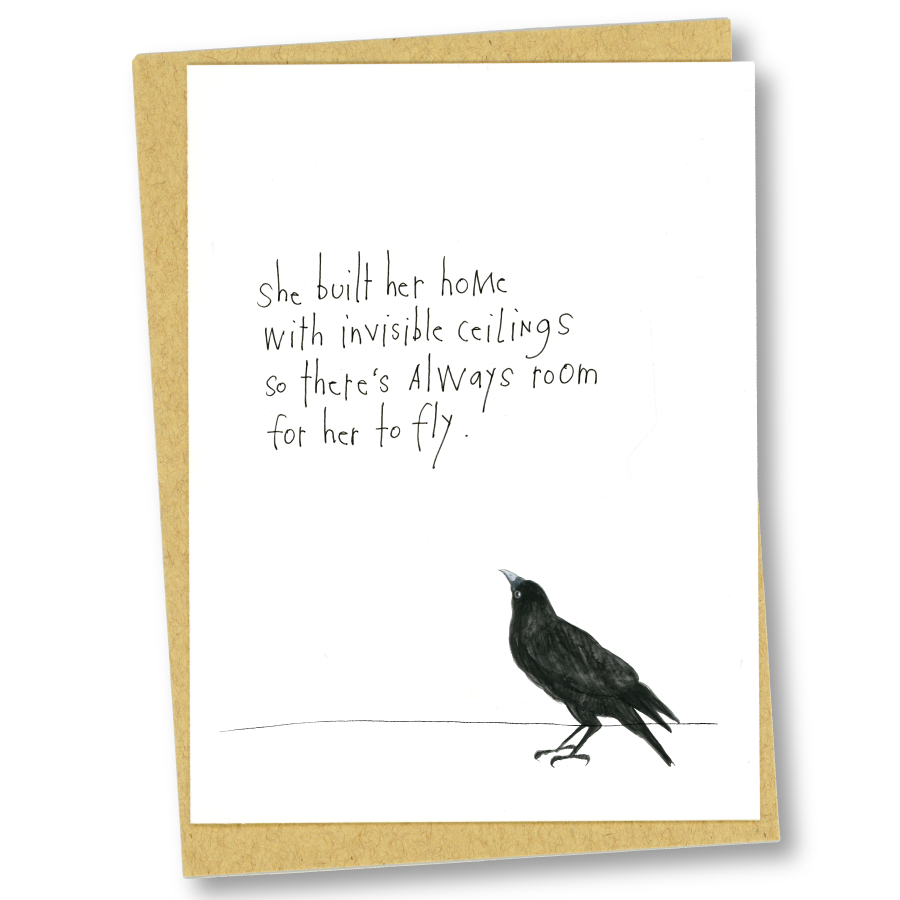 she built her home
with invisible ceilings
so there's always room
for her to fly.